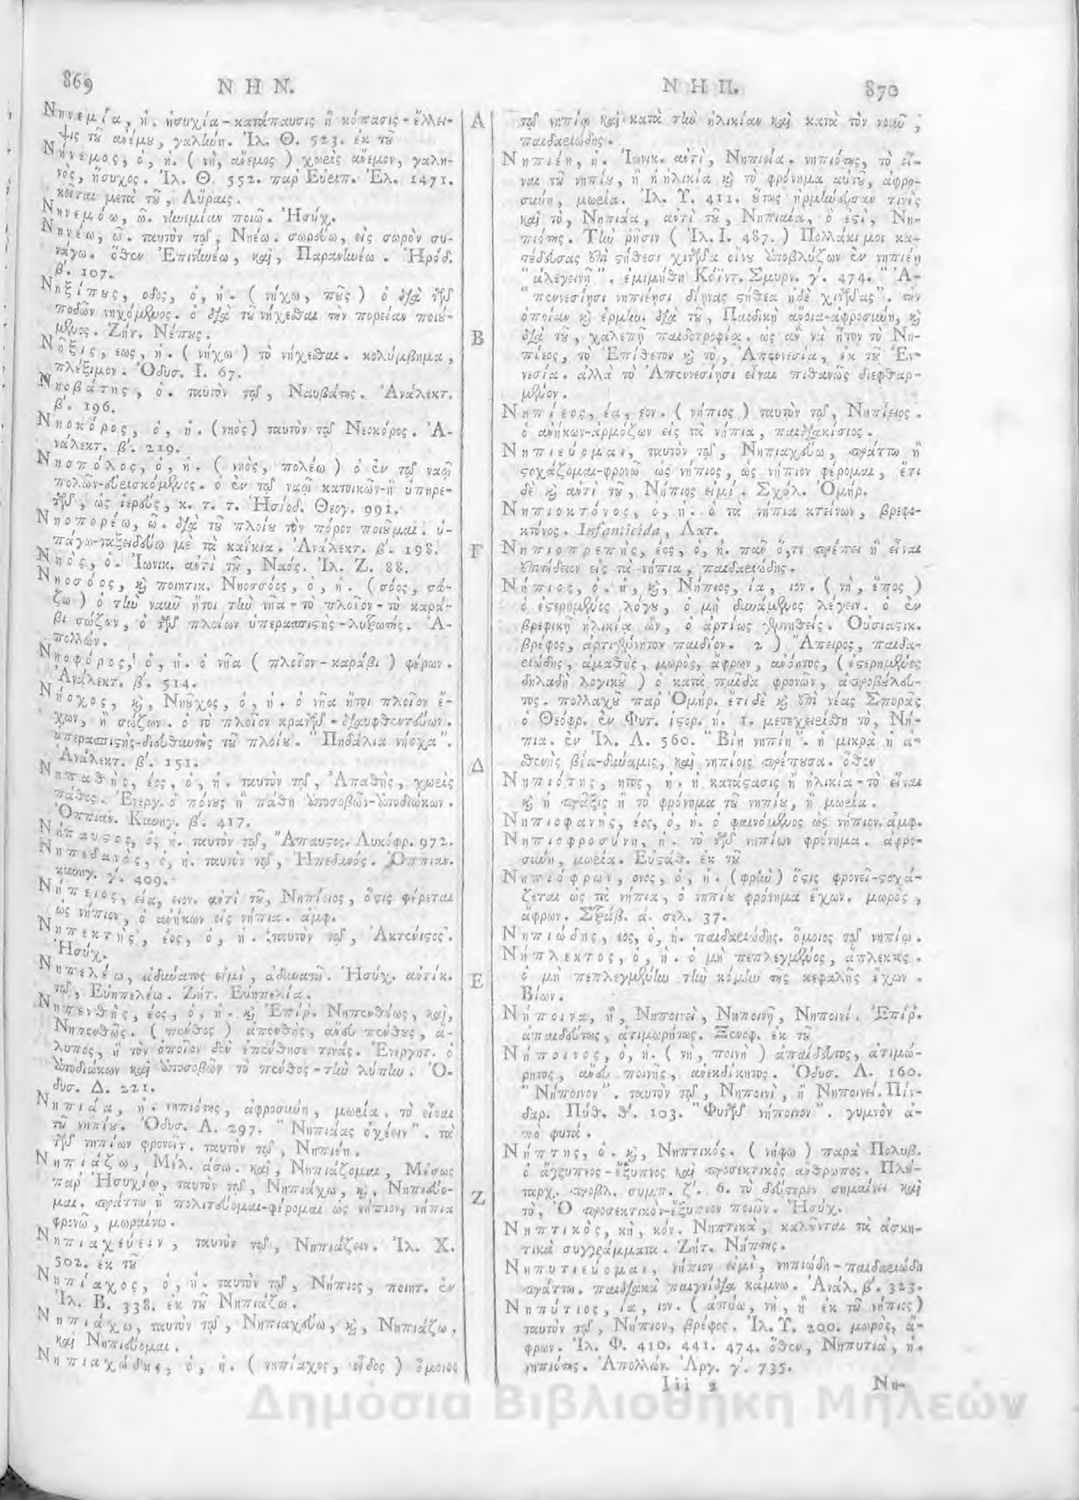 869 ΝΗΝ.
Νηνεμία, ἡ. ἡσυχία-κατάπαυσις ἢ κόπασις-ἔλλει-
ψις τοῦ ἀνέμου, γαλήνη. Ἰλ. Θ. 523. ἐκ τοῦ
Νήνεμος, ὁ, ἡ. ( νη, ἄνεμος ) χωρὶς ἄνεμον, γαλη-
νὸς, ἥσυχος. Ἰλ. Θ. 552. παρ' Εὐριπ. Ἑλ. 1471.
κεῖται μετὰ τοῦ, Αὔραις.
Νηνεμόω, ῶ. νηνεμίαν ποιῶ. Ἡσύχ.
Νηνέω, ῶ. ταυτὸν τῷ, Νηέω. σωρεύω, εἰς σωρὸν συ-
νάγω. ὅθεν Ἐπινηνέω, καὶ, Παρανηνέω. Ἡρόδ.
β'. 107.
Νηξίπους, οδος, ὁ, ἡ. ( νήχω, ποῦς ) ὁ διὰ τῶν
ποδῶν νηχόμενος. ὁ διὰ τοῦ νήχεσθαι τὴν πορείαν ποιού-
μενος. Ζήτ. Νέπους.
Νῆξις, εως, ἡ. ( νήχω ) τὸ νήχεσθαι. κολύμβημα,
πλέξιμον. Ὀδυσ. Ι. 67.
Νηοβάτης, ὁ. ταυτὸν τῷ, Ναυβάτης. Ἀνάλεκτ.
β'. 196.
Νηοκόρος, ὁ, ἡ. (νηὸς) ταυτὸν τῷ Νεοκόρος. Ἀ-
νάλεκτ. β'. 219.
Νηοπόλος, ὁ, ἡ. ( νηὸς, πολέω ) ὁ ἐν τῷ ναῷ
πολῶν-εὑρισκόμενος. ὁ ἐν τῷ ναῷ κατοικῶν-ἢ ὑπηρε-
τῶν, ὡς ἱερεὺς, κ. τ. τ. Ἡσίοδ. Θεογ. 991.
Νηοπορέω, ῶ. διὰ τοῦ πλοίου τὸν πόρον ποιοῦμαι. ὑ-
πάγω-ταξειδεύω μὲ τὰ καΐκια. Ἀνάλεκτ. β'. 198.
Νηὸς, ὁ. Ἰωνικ. ἀντὶ τοῦ, Ναός. Ἰλ. Ζ. 88.
Νηοσόος, καὶ ποιητικ. Νηοσσόος, ὁ, ἡ. (σόος, σώ-
ζω ) ὁ τὴν ναῦν ἤτοι τὴν νῆα-τὸ πλοῖον-τὸ καρά-
βι σώζων, ὁ τῶν πλοίων ὑπερασπιστὴς-λυτρωτής. Ἀ-
πολλών.
Νηοφόρος, ὁ, ἡ. ὁ νῆα ( πλοῖον-καράβι ) φέρων.
Ἀνάλεκτ. β'. 514.
Νήοχος, καὶ, Νηοῦχος, ὁ, ἡ. ὁ νῆα ἤτοι πλοῖον ἔ-
χων, ἢ σώζων. ὁ τὸ πλοῖον κρατῶν-διαυθεντεύων.
ὑπερασπιστὴς-διευθυντὴς τοῦ πλοίου. "Πηδάλια νήοχα".
Ἀνάλεκτ. β'. 151.
Νηπαθὴς, έος, ὁ, ἡ. ταυτὸν τῷ, Ἀπαθὴς, χωρὶς
πάθος. Ἐνεργ. ὁ πόνους ἢ πάθη ἀποσοβῶν-ἀποδιώκων.
Ὀππιάν. Κυνηγ. β'. 417.
Νήπαυστος, ὁ, ἡ. ταυτὸν τῷ, Ἄπαυστος. Λυκόφρ. 972.
Νηπεδανὸς, ὁ, ἡ. ταυτὸν τῷ, Ἠπεδανός. Ὀππιαν.
κυνηγ. γ'. 409.
Νηπείος, εία, ειον. ἀντὶ τοῦ, Νηπίειος, ὅστις φέρεται
ὡς νήπιον, ὁ ἀνήκων εἰς νήπια. ἀμφ.
Νηπεκτὴς, έος, ὁ, ἡ. ταυτὸν τῷ, Ἀκτένιστος.
Ἡσύχ.
Νηπελέω, ἀδύνατος εἰμὶ, ἀδυνατῶ. Ἡσύχ. ἀντίκ.
τῷ, Εὐηπελέω. Ζήτ. Εὐηπελία.
Νηπενθὴς, έος, ὁ, ἡ. καὶ Ἐπίρ. Νηπενθέως, καὶ,
Νηπενθῶς. ( πένθος ) ἀπενθὴς, ἄνευ πένθους, ἄ-
λυπος, ἢ τὸν ὁποῖον δὲν ἐπένθησέ τινάς. Ἐνεργητ. ὁ
ἀποδιώκων καὶ ἀποσοβῶν τὸ πένθος-τὴν λύπην. Ὀ-
δυσ. Δ. 221.
Νηπιάα, ἡ. νηπιότης, ἀφροσύνη, μωρία. τὸ εἶναι
τοῦ νηπίου. Ὀδυσ. Α. 297. "Νηπιάας ὀχέειν". τὰ
τῶν νηπίων φρονεῖν. ταυτὸν τῷ, Νηπιέη.
Νηπιάζω, Μέλ. άσω. καὶ, Νηπιάζομαι, Μέσως
παρ' Ἡσυχίῳ, ταυτὸν τῷ, Νηπιάχω, καὶ, Νηπιεύο-
μαι. πράττω ἢ πολιτεύομαι-φέρομαι ὡς νήπιον, νήπια
φρονῶ, μωραίνω.
Νηπιαχεύειν, ταυτὸν τῷ, Νηπιάζειν. Ἰλ. Χ.
502. ἐκ τοῦ
Νηπίαχος, ὁ, ἡ. ταυτὸν τῷ, Νήπιος, ποιητ. ἐν
Ἰλ. Β. 338. ἐκ τοῦ Νηπιάζω.
Νηπιάχω, ταυτὸν τῷ, Νηπιαχεύω, καὶ, Νηπιάζω,
καὶ Νηπιεύομαι.
Νηπιαχώδης, ὁ, ἡ. ( νηπίαχος, εἶδος ) ὅμοιος
Α
Β
Γ
Δ
Ε
Ζ
ΝΗΠ. 870
τῷ νηπίῳ καὶ κατὰ τὴν ἡλικίαν καὶ κατὰ τὸν νοῦν,
παιδαριώδης.
Νηπιέη, ἡ. Ἰωνικ. ἀντὶ, Νηπιεία. νηπιότης, τὸ εἶ-
ναι τοῦ νηπίου, ἢ ἡ ἡλικία καὶ τὸ φρόνημα αὐτοῦ, ἀφρο-
σύνη, μωρία. Ἰλ. Υ. 411. οὕτως ἡρμήνευσαν τινὲς
καὶ τὸ, Νηπιάα, ἀντὶ τοῦ, Νηπιαία, ὅ ἐστι, Νη-
πιότης. Τὴν ῥῆσιν ( Ἰλ. Ι. 487. ) Πολλάκι μοι κα-
τέδευσας ἐπὶ στήθεσι χιτῶνα οἴνου ἀποβλύζων ἐν νηπιέῃ
"ἀλεγεινῇ". ἐμιμήθη Κόϊντ. Σμυρν. γ'. 474. "Ἀ-
"πεννεσίῃσι νηπιέῃσι δίηνας στήθεά ἠδὲ χιτῶνας". τὴν
ὁποίαν καὶ ἑρμην. διὰ τοῦ, Παιδικὴ ἄνοια-ἀφροσύνη, καὶ
διὰ τοῦ, χαλεπὴ παιδοτροφία. ὡς ἂν νὰ ἦτον τὸ Νη-
πίεος, τὸ Ἐπίθετον καὶ τὸ, Ἀπεννεσία, ἐκ τοῦ Ἐν-
νεσία. ἀλλὰ τὸ Ἀπεννεσίῃσι εἶναι πιθανῶς διεφθαρ-
μένον.
Νηπίεος, έα, εον. ( νήπιος ) ταυτὸν τῷ, Νηπίειος.
ὁ ἀνήκων-ἁρμόζων εἰς τὰ νήπια, παιδιακίσιος.
Νηπιεύομαι, ταυτὸν τῷ, Νηπιαχεύω, πράττω ἢ
στοχάζομαι-φρονῶ ὡς νήπιος, ὡς νήπιον φέρομαι, ἔτι
δὲ καὶ ἀντὶ τοῦ, Νήπιος εἰμί. Σχόλ. Ὁμήρ.
Νηπιοκτόνος, ὁ, ἡ. ὁ τὰ νήπια κτείνων, βρεφο-
κτόνος. Infanticida, Λατ.
Νηπιοπρεπὴς, έος, ὁ, ἡ. πᾶν ὅ,τι πρέπει ἢ εἶναι
ἐπιτήδειον εἰς τὰ νήπια, παιδαριώδης.
Νήπιος, ὁ. ἡ, καὶ, Νήπιος, ία, ιον. ( νη, ἔπος )
ὁ ἐστερημένος λόγου, ὁ μὴ δυνάμενος λέγειν. ὁ ἐν
βρεφικῇ ἡλικίᾳ ὢν, ὁ ἀρτίως γεννηθείς. Οὐσιαστικ.
βρέφος, ἀρτιγέννητον παιδίον. 2 ) Ἄπειρος, παιδα-
ριώδης, ἀμαθὴς, μωρὸς, ἄφρων, ἀνόητος, ( ἐστερημένος
δηλαδὴ λογικοῦ ) ὁ κατὰ παῖδα φρονῶν, ἀπροβούλευ-
τος. πολλαχοῦ παρ' Ὁμήρ. ἔτι δὲ καὶ ἐπὶ νέας Σπορᾶς
ὁ Θεόφρ. ἐν Φυτ. ἱστορ. η. 1. μετεχειρίσθη τὸ, Νή-
πια. ἐν Ἰλ. Λ. 560. "Βίη νηπίη". ἡ μικρὰ ἡ ἀ-
σθενὴς βία-δύναμις, καὶ νηπίοις πρέπουσα. ὅθεν
Νηπιότης, ητος, ἡ. ἡ κατάστασις ἢ ἡλικία-τὸ εἶναι
καὶ ἡ πρᾶξις ἢ τὸ φρόνημα τοῦ νηπίου, ἢ μωρία.
Νηπιοφανὴς, έος, ὁ, ἡ. ὁ φαινόμενος ὡς νήπιον. ἀμφ.
Νηπιοφροσύνη, ἡ. τὸ τῶν νηπίων φρόνημα. ἀφρο-
σύνη, μωρία. Εὐστάθ. ἐκ τοῦ
Νηπιόφρων, ονος, ὁ, ἡ. (φρὴν) ὅστις φρονεῖ-στοχά-
ζεται ὡς τὰ νήπια, ὁ νηπίου φρόνημα ἔχων. μωρὸς,
ἄφρων. Στράβ. α. σελ. 37.
Νηπιώδης, εος, ὁ, ἡ. παιδαριώδης. ὅμοιος τῷ νηπίῳ.
Νήπλεκτος, ὁ, ἡ. ὁ μὴ πεπλεγμένος, ἄπλεκτος.
ὁ μὴ πεπλεγμένην τὴν κόμην τῆς κεφαλῆς ἔχων.
Βίων.
Νήποινα, ἢ, Νηποινεὶ, Νηποινῆ, Νηποινί. Ἐπίρ.
ἀπαιδεύτως, ἀτιμωρήτως. Ξενοφ. ἐκ τοῦ
Νήποινος, ὁ, ἡ. ( νη, ποινὴ ) ἀπαίδευτος, ἀτιμώ-
ρητος, ἄνευ ποινῆς, ἀνεκδίκητος. Ὀδυσ. Α. 160.
"Νήποινον". ταυτὸν τῷ, Νηποινὶ, ἢ Νηποινεί. Πίν-
δαρ. Πύθ. θ'. 103. "Φυτῶν νήποινον". γυμνὸν ἀ-
πὸ φυτά.
Νήπτης, ὁ. καὶ, Νηπτικός. ( νήφω ) παρὰ Πολυβ.
ὁ ἄγρυπνος-ἔξυπνος καὶ προσεκτικὸς ἄνθρωπος. Πλού-
ταρχ. προβλ. συμπ. ζ'. 6. τὸ δεύτερον σημαίνει καὶ
τὸ, Ὁ προσεκτικὸν-ἔξυπνον ποιῶν. Ἡσύχ.
Νηπτικὸς, κὴ, κόν. Νηπτικὰ, καλοῦνται τὰ ἀσκη-
τικὰ συγγράμματα. Ζήτ. Νήπτης.
Νηπυτιεύομαι, νήπιον εἰμὶ, νηπιώδη-παιδαριώδη
πράττω. παιδιακὰ παιγνίδια κάμνω. Ἀνάλ. β'. 323.
Νηπύτιος, ία, ιον. ( ἀπύω, νη, ἢ ἐκ τοῦ νήπιος)
ταυτὸν τῷ, Νήπιον, βρέφος. Ἰλ. Υ. 200. μωρὸς, ἄ-
φρων. Ἰλ. Φ. 410. 441. 474. ὅθεν, Νηπυτία, ἡ.
νηπιότης. Ἀπολλών. Ἀργ. γ'. 735.
Iii 2 Νη-
Δημόσια Βιβλιοθήκη Μηλεών